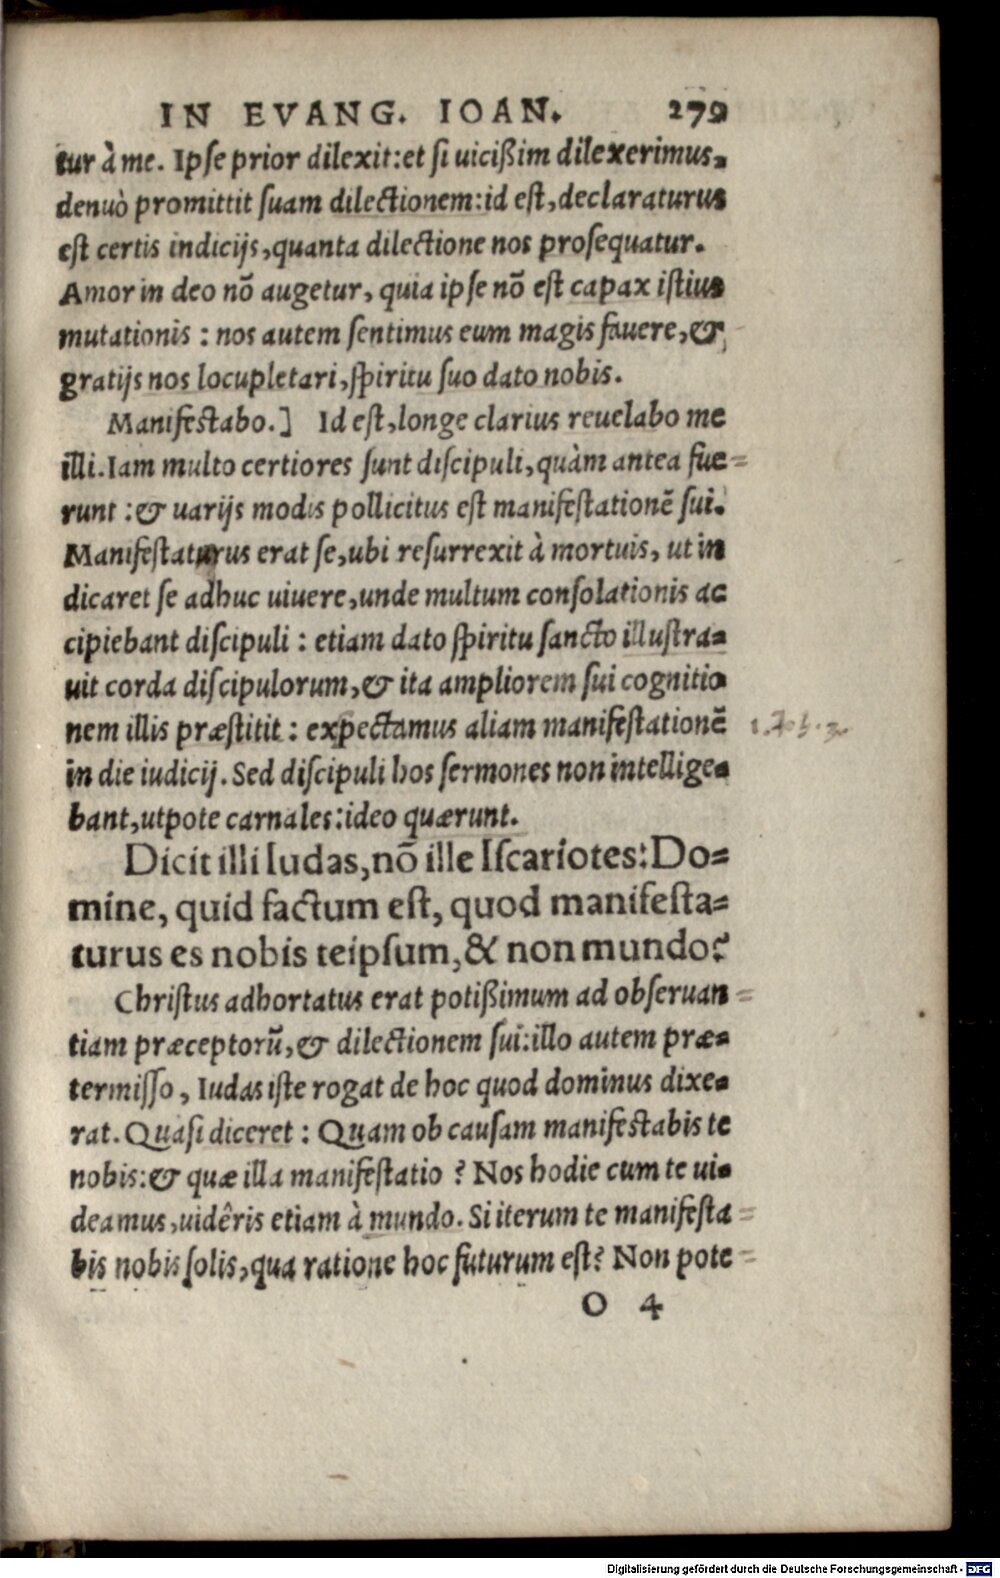 IN EVANG. IOAN. 279
tur à me. Ipse prior dilexit: et si uicißim dilexerimus,
denuò promittit suam dilectionem: id est, declaraturus
est certis indicijs, quanta dilectione nos prosequatur.
Amor in deo nõ augetur, quia ipse nõ est capax istius
mutationis : nos autem sentimus eum magis fauere, &
gratijs nos locupletari, spiritu suo dato nobis.
Manifestabo.] Id est, longe clarius reuelabo me
illi. Iam multo certiores sunt discipuli, quàm antea fue=
runt : & uarijs modis pollicitus est manifestationẽ sui.
Manifestaturus erat se, ubi resurrexit à mortuis, ut in
dicaret se adhuc uiuere, unde multum consolationis ac
cipiebant discipuli : etiam dato spiritu sancto illustra=
uit corda discipulorum, & ita ampliorem sui cognitio
nem illis præstitit : expectamus aliam manifestationẽ
in die iudicij. Sed discipuli hos sermones non intellige=
bant, utpote carnales: ideo quærunt.
Dicit illi Iudas, nõ ille Iscariotes: Do=
mine, quid factum est, quod manifesta=
turus es nobis teipsum, & non mundo?
Christus adhortatus erat potißimum ad obseruan=
tiam præceptorũ, & dilectionem sui: illo autem præ=
termisso, Iudas iste rogat de hoc quod dominus dixe=
rat. Quasi diceret : Quam ob causam manifestabis te
nobis: & quæ illa manifestatio ? Nos hodie cum te ui=
deamus, uidêris etiam à mundo. Si iterum te manifesta=
bis nobis solis, qua ratione hoc futurum est? Non pote=
O 4
Digitalisierung gefördert durch die Deutsche Forschungsgemeinschaft - DFG